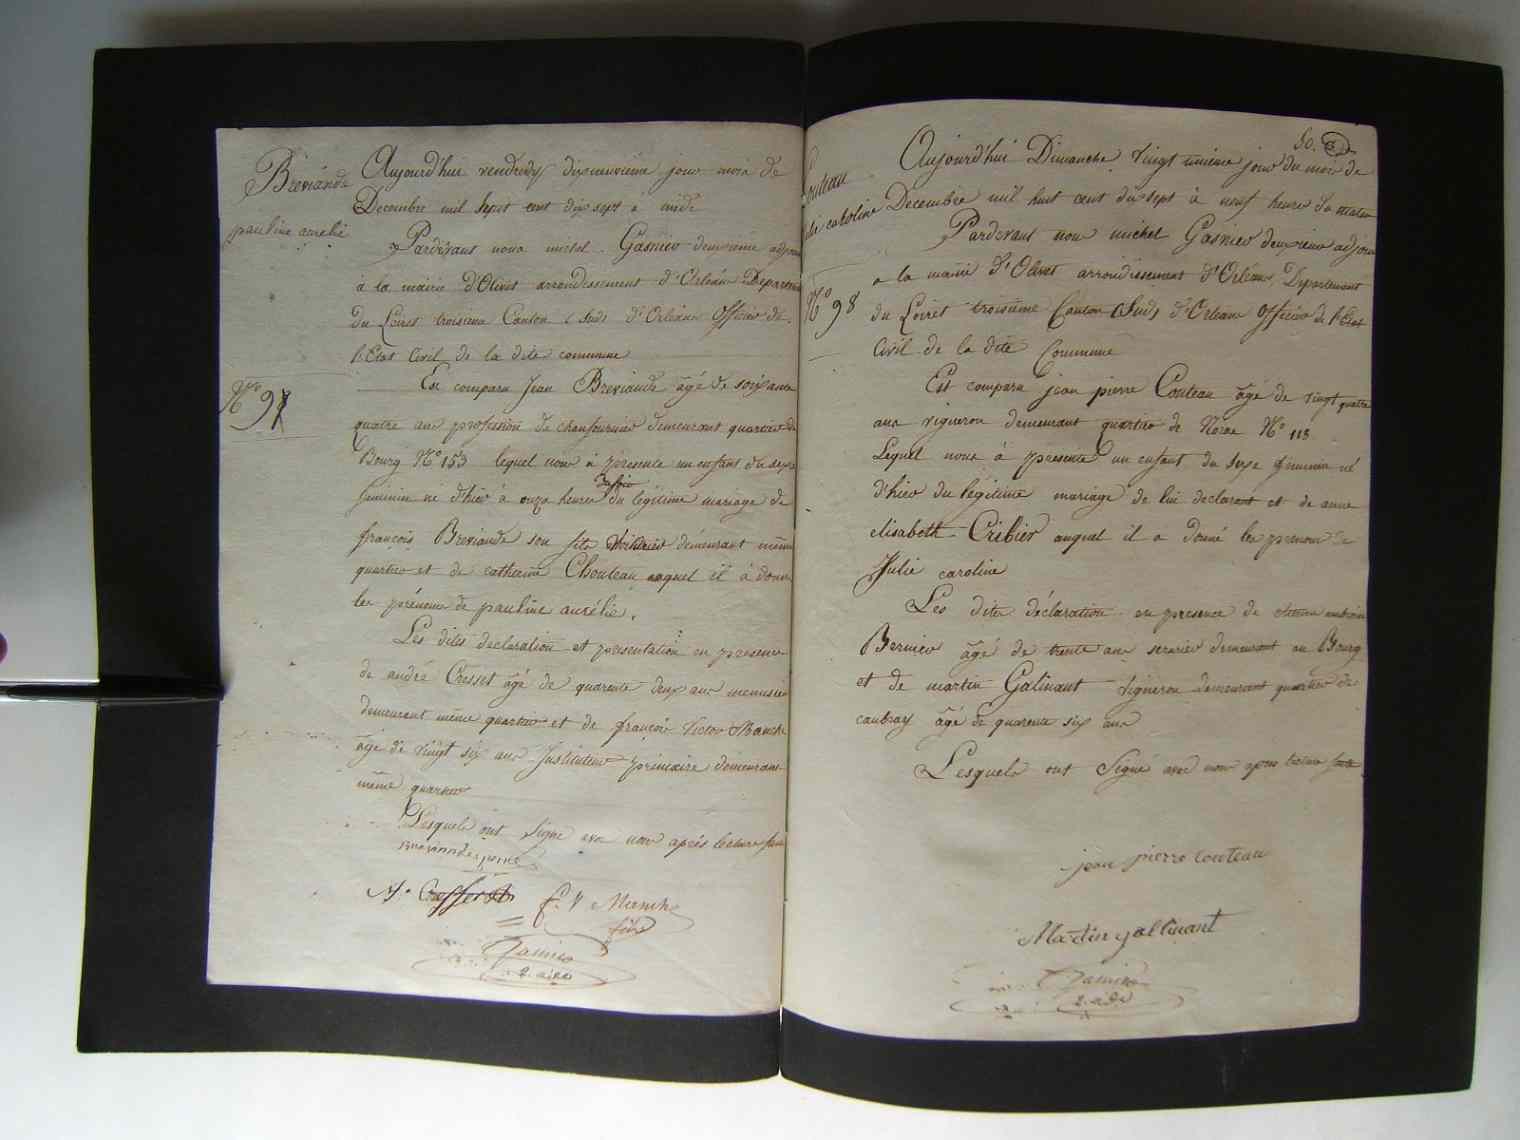 Breviande
pauline aurelie
Nº 97
Aujourd'hui vendredy dixneuvieme jour mois de
Decembre mil sept cent dix sept à midi
Pardevant nous michel Gasnier deuxieme adjoint
à la mairie d'Olivet arrondissement d'Orléans Departement
Du Loiret troisieme Canton (Sud) d'Orléans Officier de
l'Etat Civil de la dite commune
Est comparu Jean Breviande âgé de soixante
quatre ans profession de chaufournier demeurant quartier du
Bourg Nº 153 lequel nous à presente un enfant du sexe
feminin né d'hier à onze heures du légitime mariage de
françois Breviande son fils demeurant même
quartier et de catherine Chouteau auquel il à donné
les prénoms de pauline aurélie.
Les dites declaration et presentation en presence
de andré Cresset âgé de quarente deux ans menuisier
demeurant même quartier et de françois Victor Manche
âgé de vingt six ans Instituteur primaire demeurant
même quartier
Lesquels ont Signé avec nous après lecture faite
F. V Manche
fils
Gasnier
2. adj
50.
Couteau
Julie caroline
Nº 98
Aujourd'hui Dimanche vingt unieme jour du mois de
Decembre mil huit cent dix sept à neuf heures du matin
Pardevant nous michel Gasnier deuxieme adjoint
a la mairie d'Olivet arrondissement d'Orléans, Departement
du Loiret troisieme Canton (Sud) d'Orleans Officier de l'Etat
Civil de la dite Commune
Est comparu jean pierre Couteau âgé de vingt quatre
ans vigneron demeurant quartier de Nº 113
Lequel nous à presenté un enfant du sexe feminin né
d'hier du légitime mariage de lui declarant et de anne
elisabeth Cribier auquel il a donné les prenoms de
Julie caroline
Les dites déclaration en presence de
Bernier âgé de trente ans serurier demeurant au Bourg
et de martin Galinant vigneron demeurant quartier de
caubray âgé de quarente six ans
Lesquels ont Signé avec nous apres lecture faite
jean pierre couteau
Martin gallinant
Gasnier
2. adj